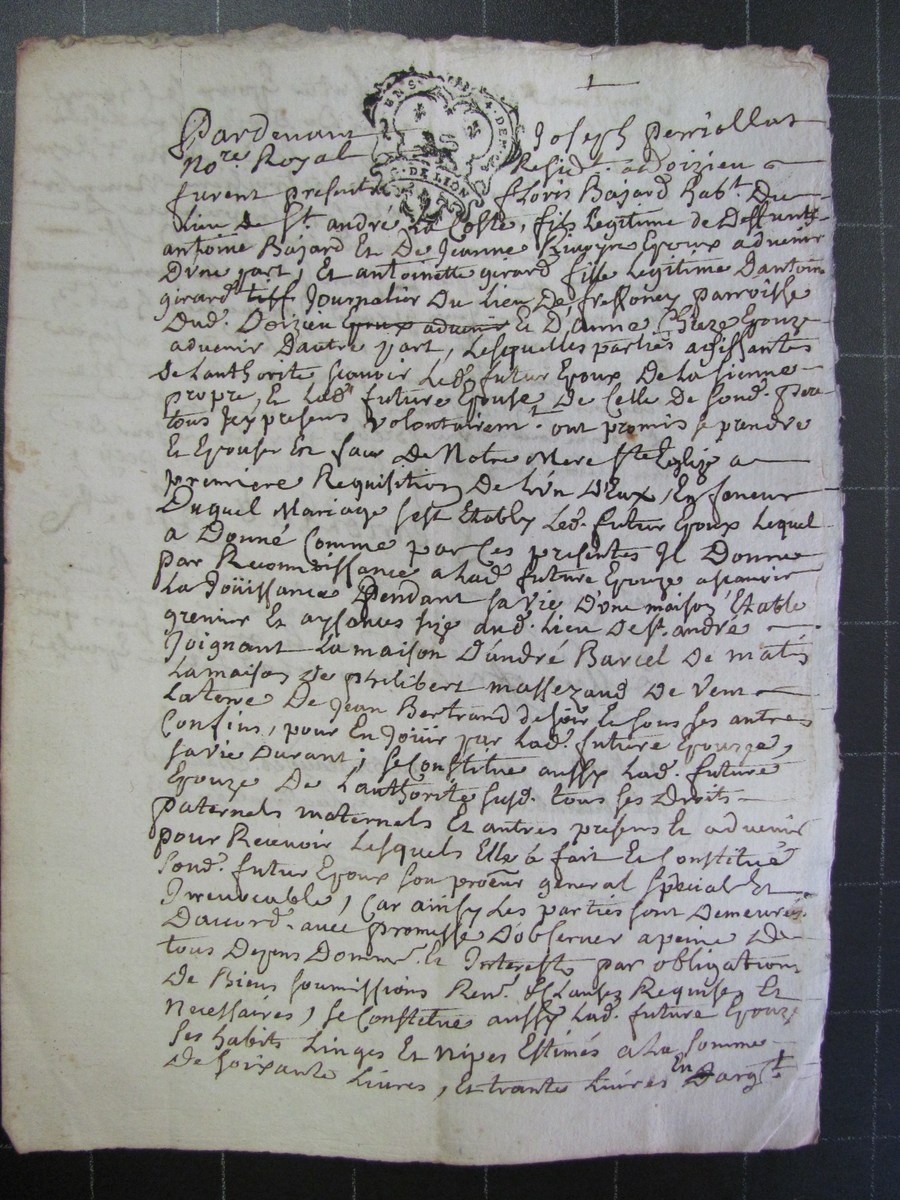 1
Pardevant Joseph perriollat
no.re Royal Resid.t a Doizieu
furent presents floris Bajard hab.t Du
Lieu de St. andré La Coste, fils Legitime de Deffunts
antoine Bajard Et De Jeanne Epoux advenir
D'vne part, Et antoinette girard fille Legitime Dantoine
girard Journalier Du Lieu De parroisse
Dud. Doizieu Epoux advenir Et D'anne Epouze
advenir Dautre part, Lesquelles parties agissantes
de Lauthorité scavoir Led. futur Epoux De La sienne
propre, Et Lad. future Epouse De Celle De Sond. Pere
tous Icy presens Volontairem.t ont promis se prendre
Et Epouser En face De Notre Mere Ste Eglize a
premiere Requisition De L'vn D'Eux, En faveur
Duquel Mariage s'est Etably Led. futur Epoux Lequel
a Donné Comme par Ces presentes Il Donne
par Reconnoissance a Lad. future Epouze ascavoir
La Joüissance Pendant sa vie D'vne maison Etable
grenier Et aysances size aud. Lieu De St. andré
Joignant La maison D'andré Barcel De matin
La maison de philibert massezaud De Vent
La terre De Jean Bertrand de soir Et sous ses autres
Confins, pour En Joüir par Lad. future Epouze,
sa vie Durant; se Constitue aussy Lad. future
Epouze De Lauthorité susd. tous ses Droits
paternels maternels Et autres presens Et advenir
pour Recevoir Lesquels Elle a fait Et Constitué
Sond. futur Epoux son general special Et
Irrevocable, Car ainsy Les parties sont Demeurés
Daccord avec promesse D'observer a peine De
tous Depens Domm. Et Interests par obligation
De Biens soumissions Ren. Et Clauses Requises Et
Necessaires, se Constitue aussy Lad. future Epouze
ses habits Linges Et Nipes Estimés a La somme
De soixante Livres, Et trante Livres En Darg.t
GENS
DE LION